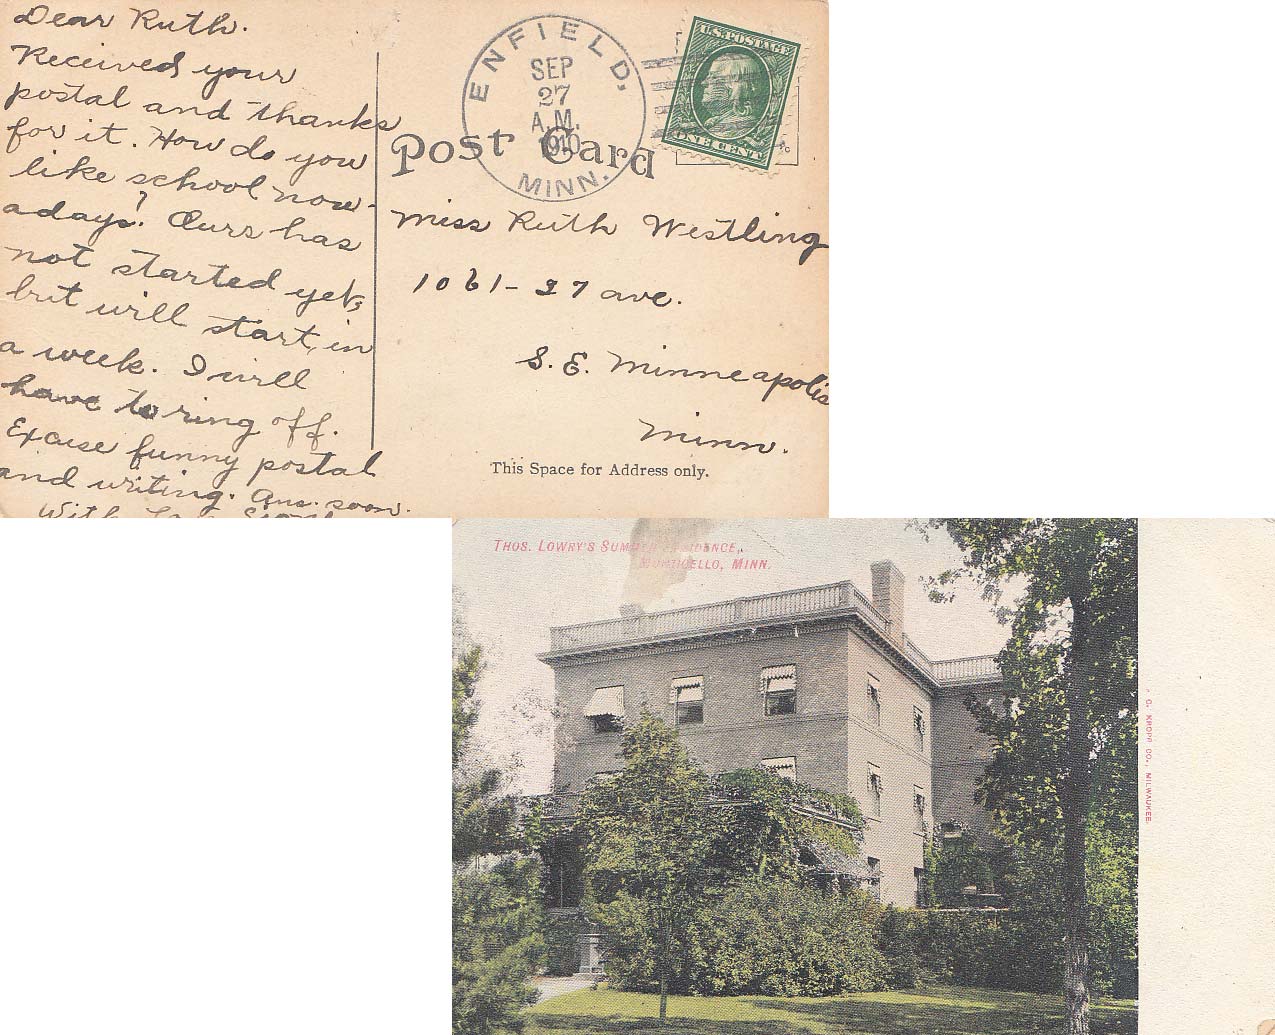 Dear Ruth.
Received your
postal and thanks
for it. How do you
like school now-
adays? Ours has
not started yet,
but will start, in
a week. I will
have to ring off.
Excuse funny postal
and writing. Ans. soon.
With
ENFIELD,
SEP
27
A.M.
1910
MINN.
U.S. POSTAGE
ONE CENT
Post Card
Miss Ruth Westling
1061-27 ave.
S. E. Minneapolis
Minn.
This Space for Address only.
THOS. LOWRY'S SUMMER RESIDENCE,
MONTICELLO, MINN.
KROPP CO., MILWAUKEE.